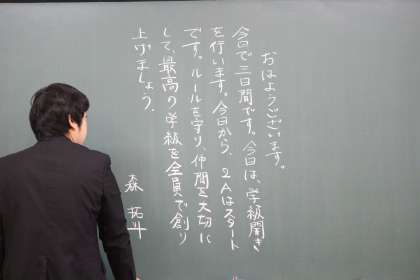 おはようございます。
今日で三日間です。今日は、学級開き
を行います。今日から、2Aはスタート
です。ルールを守り、仲間を大切に
して、最高の学級を全員で創り
上げましょう。
森 拓斗